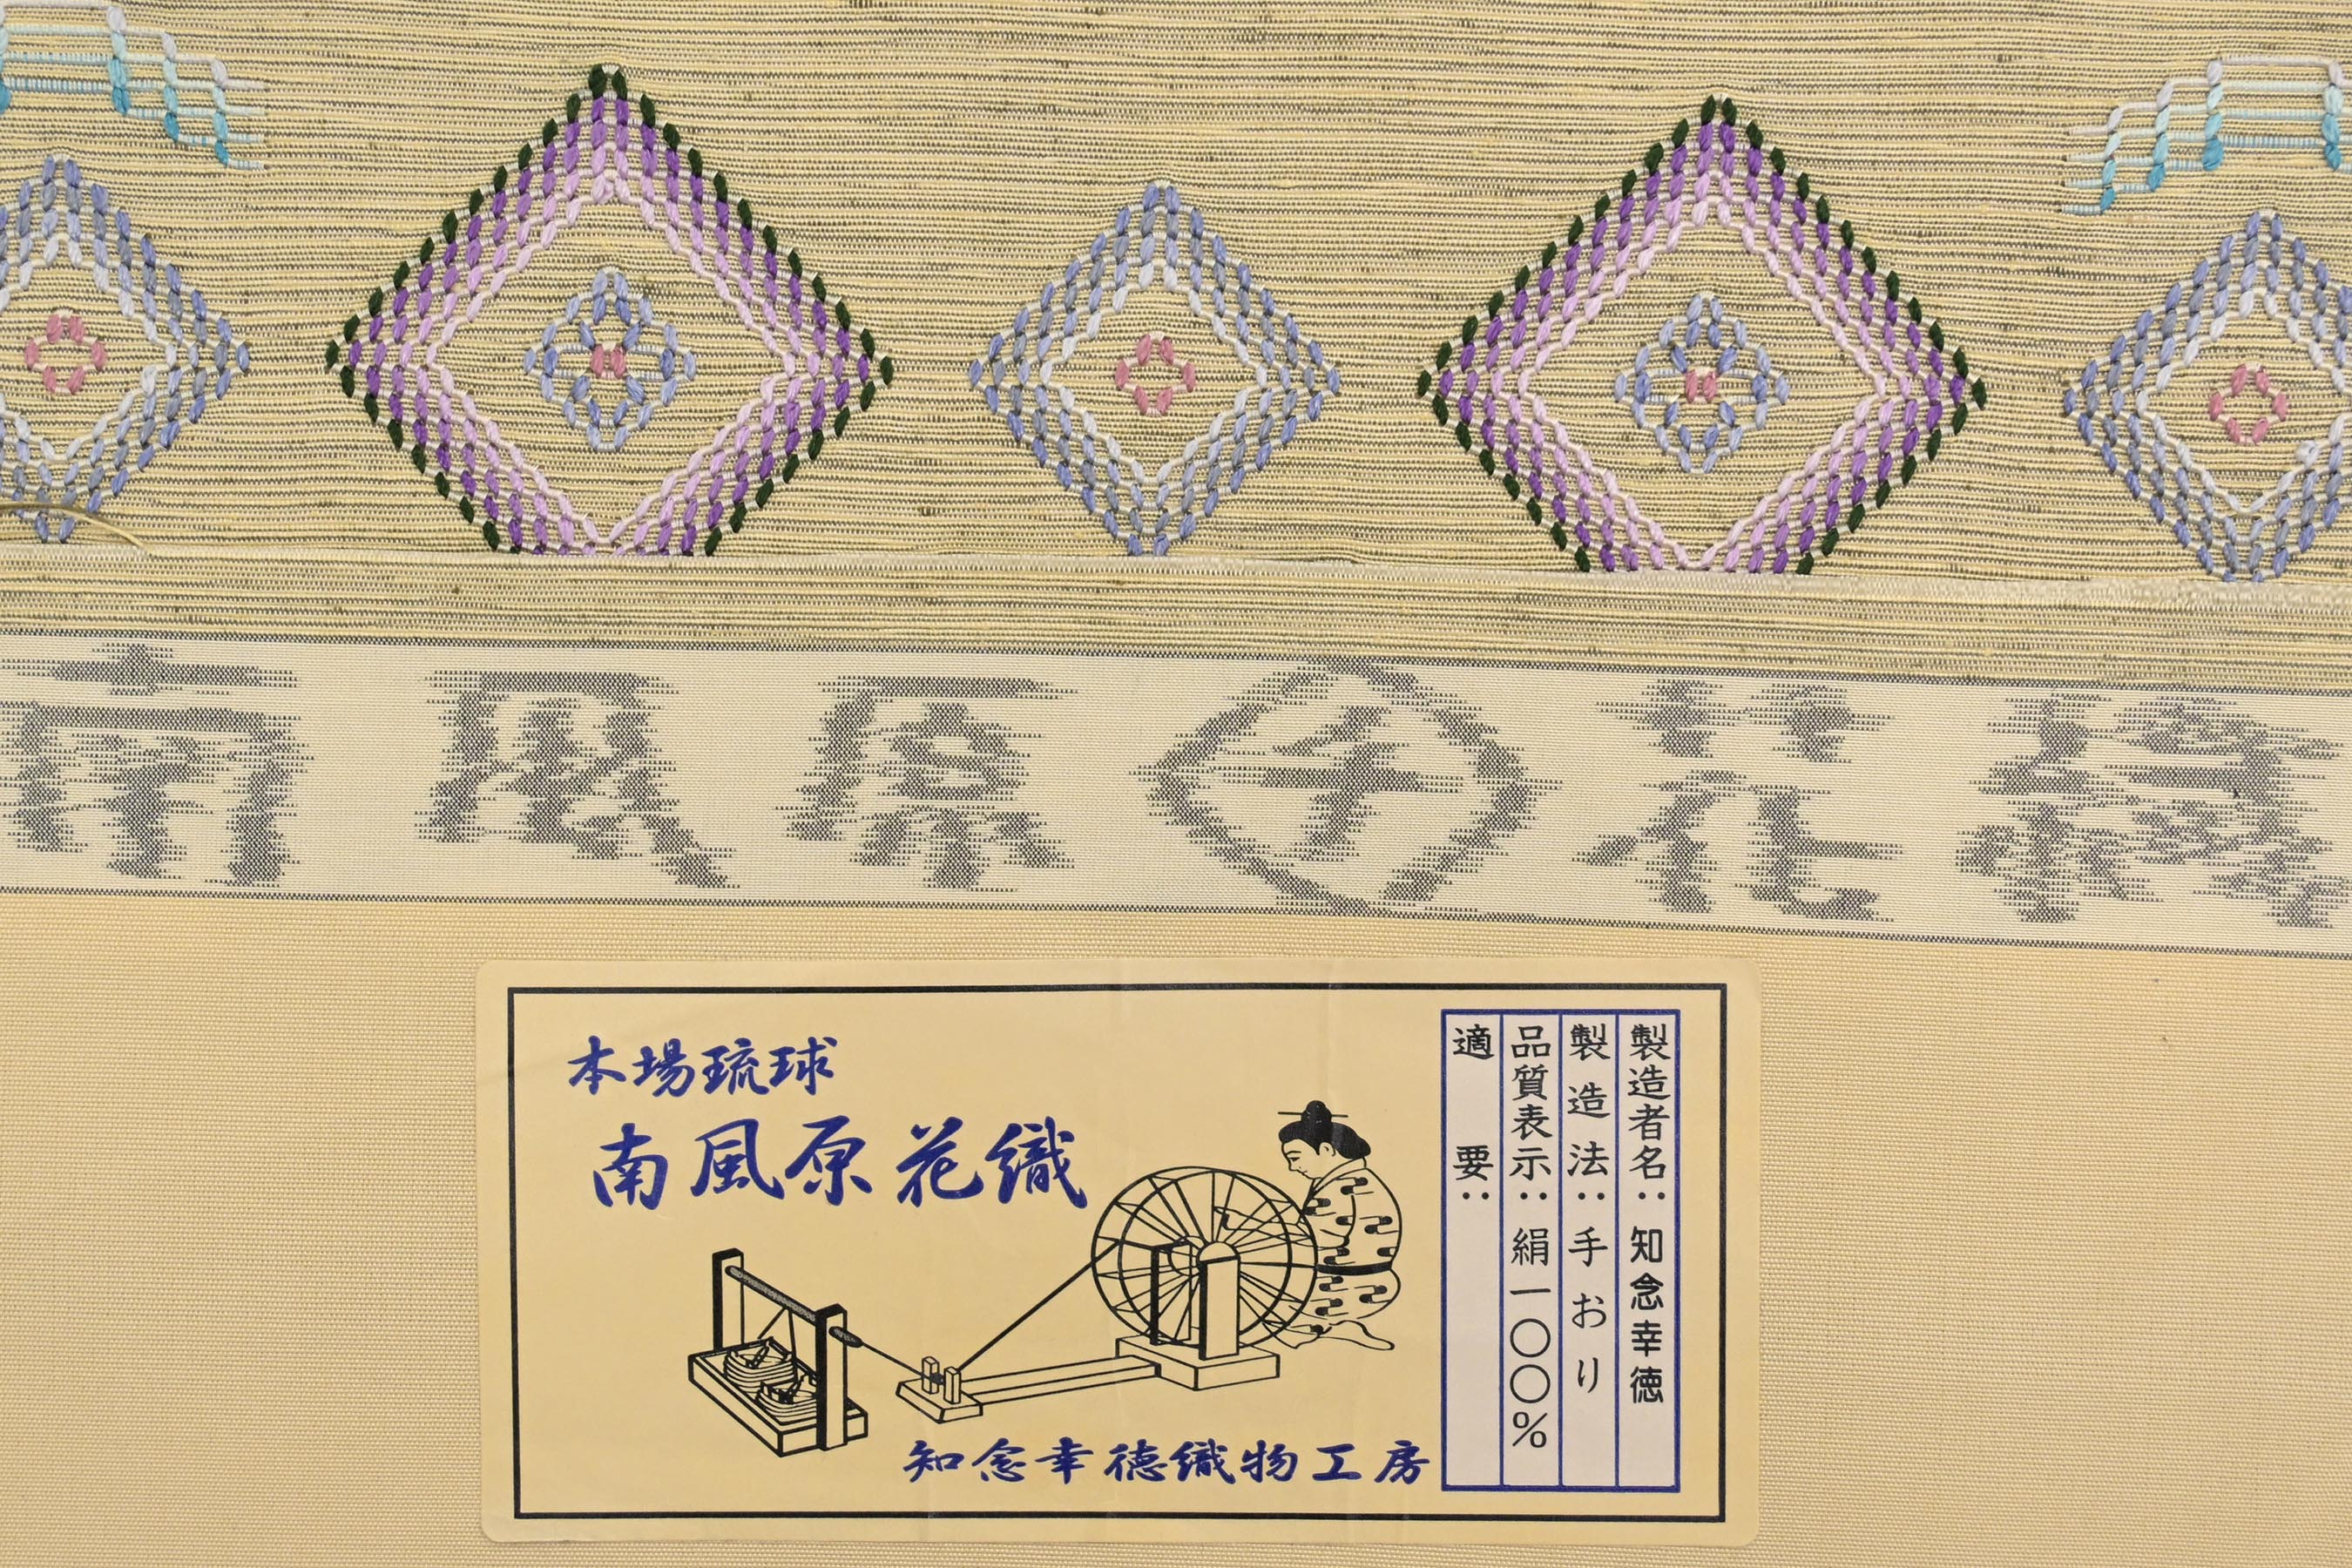 南風原㊉花織
本場琉球
南風原花織
知念幸徳織物工房
製造者名：知念幸徳
製造法：手おり
品質表示：絹一〇〇％
適要：